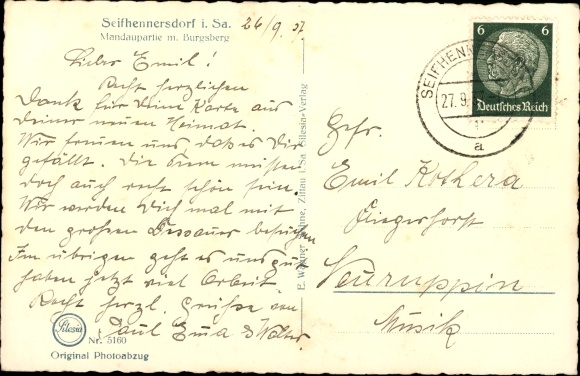 Seifhennersdorf i. Sa.
Mandaupartie m. Burgsberg
26/9. 37
Lieber Emil!
Recht herzlichen
Dank für Deine Karte aus
Deiner neuen Heimat.
Wir freuen uns, daß es Dir
gefällt. Die müssen
doch auch recht schön sein.
Wir werden Dich mal mit
den großen Dessauer besuchen
Im übrigen geht es uns gut
haben jetzt viel Arbeit.
Recht herzl. Grüße von
Paul & Walter
Silesia
Nr. 5160
Original Photoabzug
E. Wagner Söhne, Zittau i. Sa. Silesia-Verlag
6 6
Deutsches Reich
SEIFHENN
27.9.
a
Gefr.
Emil Kothera
Fliegerhorst
Neuruppin
Musik